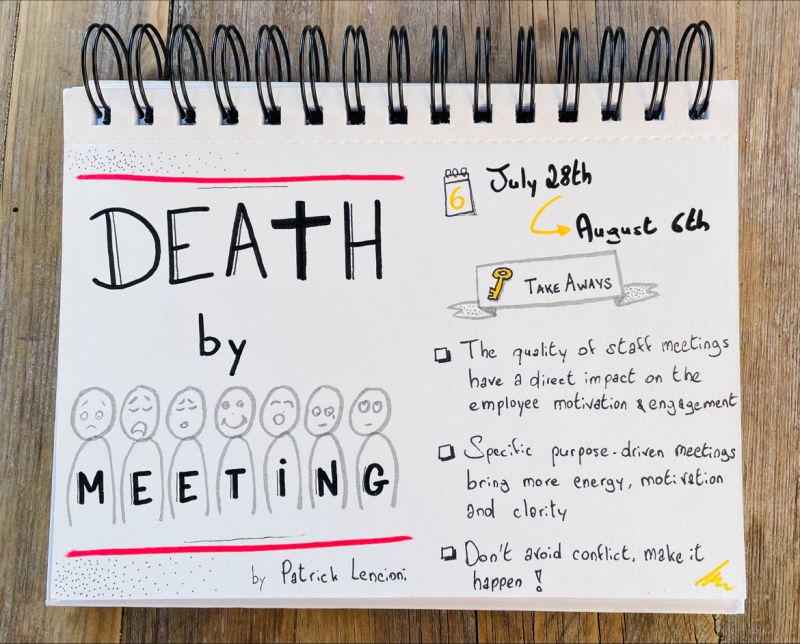 DEATH
by
MEETiNG
by Patrick Lencioni
6
July 28th
August 6th
TAKE AWAYS
The quality of staff meetings
have a direct impact on the
employee motivation & engagement
Specific purpose-driven meetings
bring more energy, motivation
and clarity
Don't avoid conflict, make it
happen !